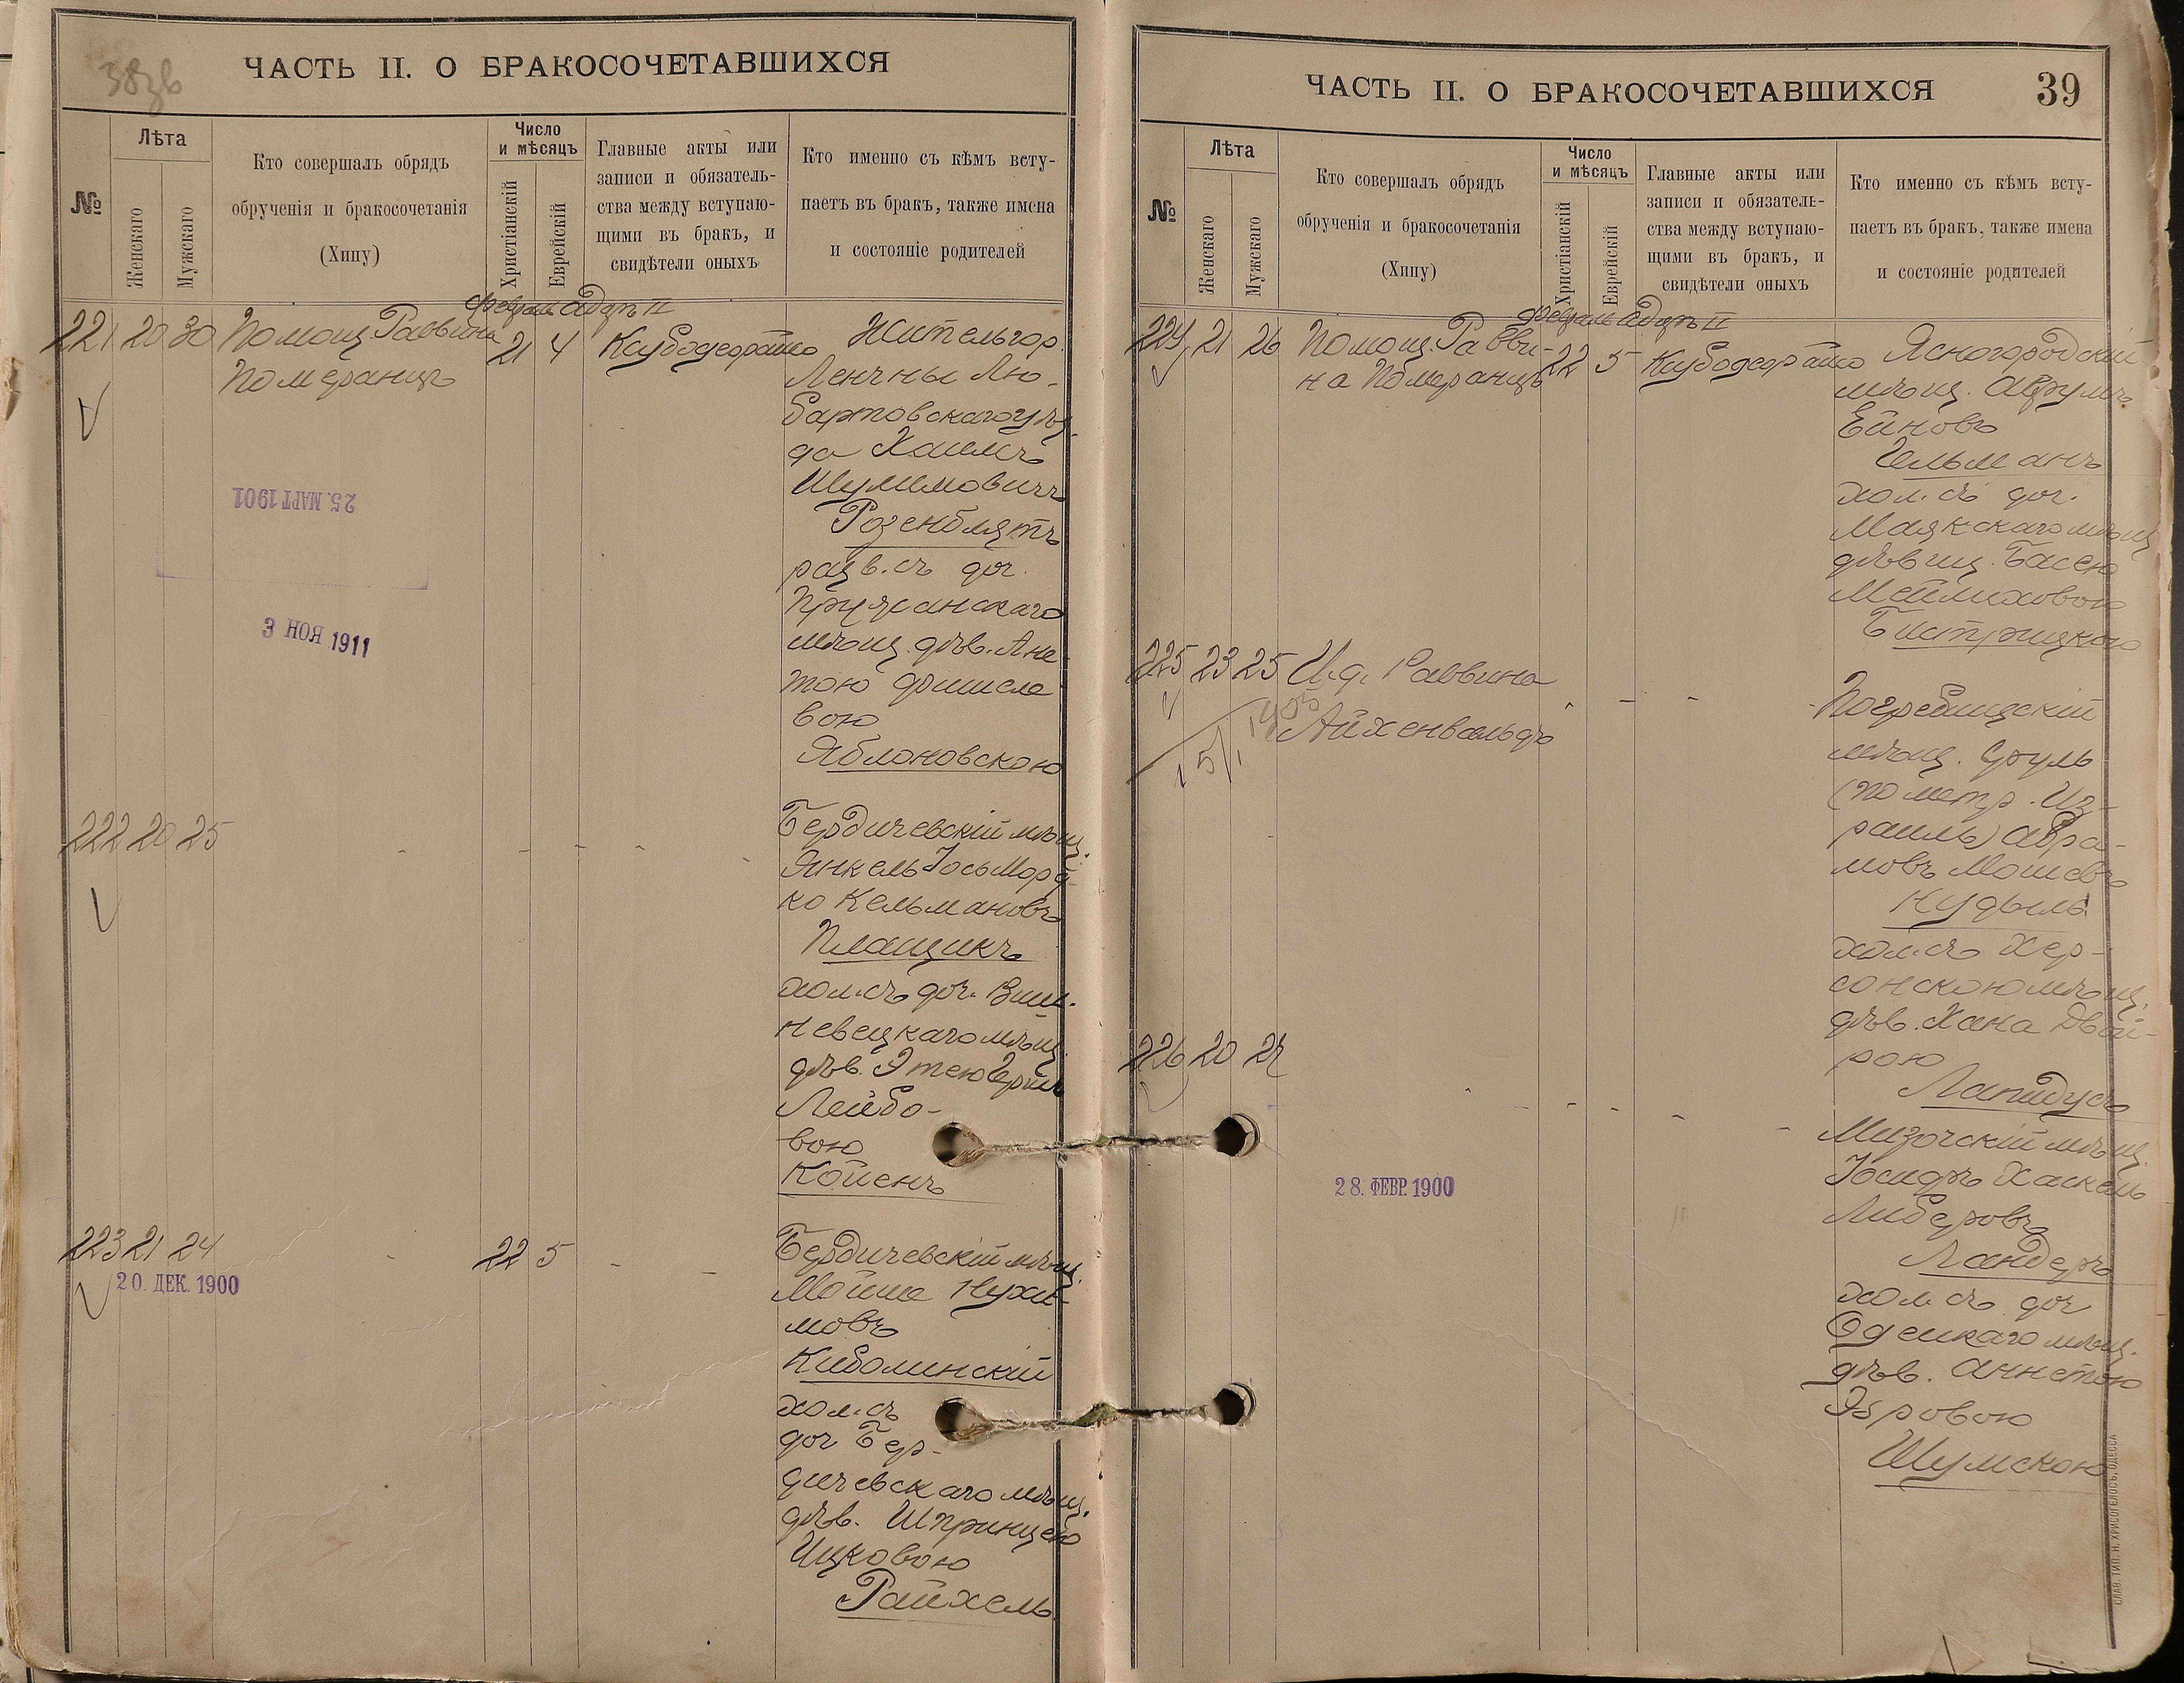 38зв
ЧАСТЬ II. О БРАКОСОЧЕТАВШИХСЯ
№
Лѣта
Женскаго
Мужскаго
Кто совершалъ обрядъ
обрученія и бракосочетанія
(Хипу)
Число
и мѣсяцъ
Христіанскій
Еврейскій
Главные акты или
записи и обязатель-
ства между вступаю-
щими въ бракъ, и
свидѣтели оныхъ
Кто именно съ кѣмъ всту-
паетъ въ бракъ, также имена
и состояніе родителей
Февраль Адаръ II
221 20 30 Помощ. Раввина 21 4
Померанцъ
Житель гор.
Ленчны Лю-
бартовскаго уѣз-
да Хаимъ
Шулимовичъ
Розенблятъ
разв. съ доч.
Пружанскаго
мѣщ. дѣв. Ане-
тою Фишеле
вою
Яблоновскою
25. МАРТ 1901
3 НОЯ 1911
222 20 25 - - - - -
Бердичевскій мѣщ.
Янкель Іось Морд-
ко Кельмановъ
Плащикъ
хол. съ доч. Виш-
невецкаго мѣщ.
дѣв. Этею
Лейбо-
вою
Койенъ
223 21 24 - 22 5 - -
20. ДЕК. 1900
Бердичевскій мѣщ.
Мойше Нухи-
мовъ
Киболинскій
хол. съ
доч Бер-
дичевскаго мѣщ.
дѣв. Шпринцею
Ицковою
Райхель
ЧАСТЬ II. О БРАКОСОЧЕТАВШИХСЯ
39
№
Лѣта
Женскаго
Мужскаго
Кто совершалъ обрядъ
обрученія и бракосочетанія
(Хипу)
Число
и мѣсяцъ
Христіанскій
Еврейскій
Главные акты или
записи и обязатель-
ства между вступаю-
щими въ бракъ, и
свидѣтели оныхъ
Кто именно съ кѣмъ всту-
паетъ въ бракъ, также имена
и состояніе родителей
Февраль Адаръ II
224 21 26 Помощ. Равви- 22 5
на Померанцъ
Ясногородскій
мѣщ. Аврумъ
Ейновъ
Гельманъ
хол. съ доч.
Маякскаго мѣщ
дѣвиц. Басею
Мейлиховою
Бистрицкою
225 23 25 И. д. Раввина - - -
Айхенвальдъ
15/I 1905
Погребищскій
мѣщ. Сруль
(по метр. Из-
раиль) Авра-
мовъ Мошевъ
Нудыль
хол. съ Хер-
сонскою мѣщ.
дѣв. Хана Двой-
рою
Лапидусъ
226 20 27 - - - - -
28. ФЕВР. 1900
Мизочскій мѣщ.
Іосифъ Хаскель
Либеровъ
Ландеръ
хол. съ доч
Одескаго мѣщ.
дѣв. Аннетою
Эвровою
Шумскою
СЛАВ. ТИП. Н. ХРИСОГЕЛОСЪ, ОДЕССА